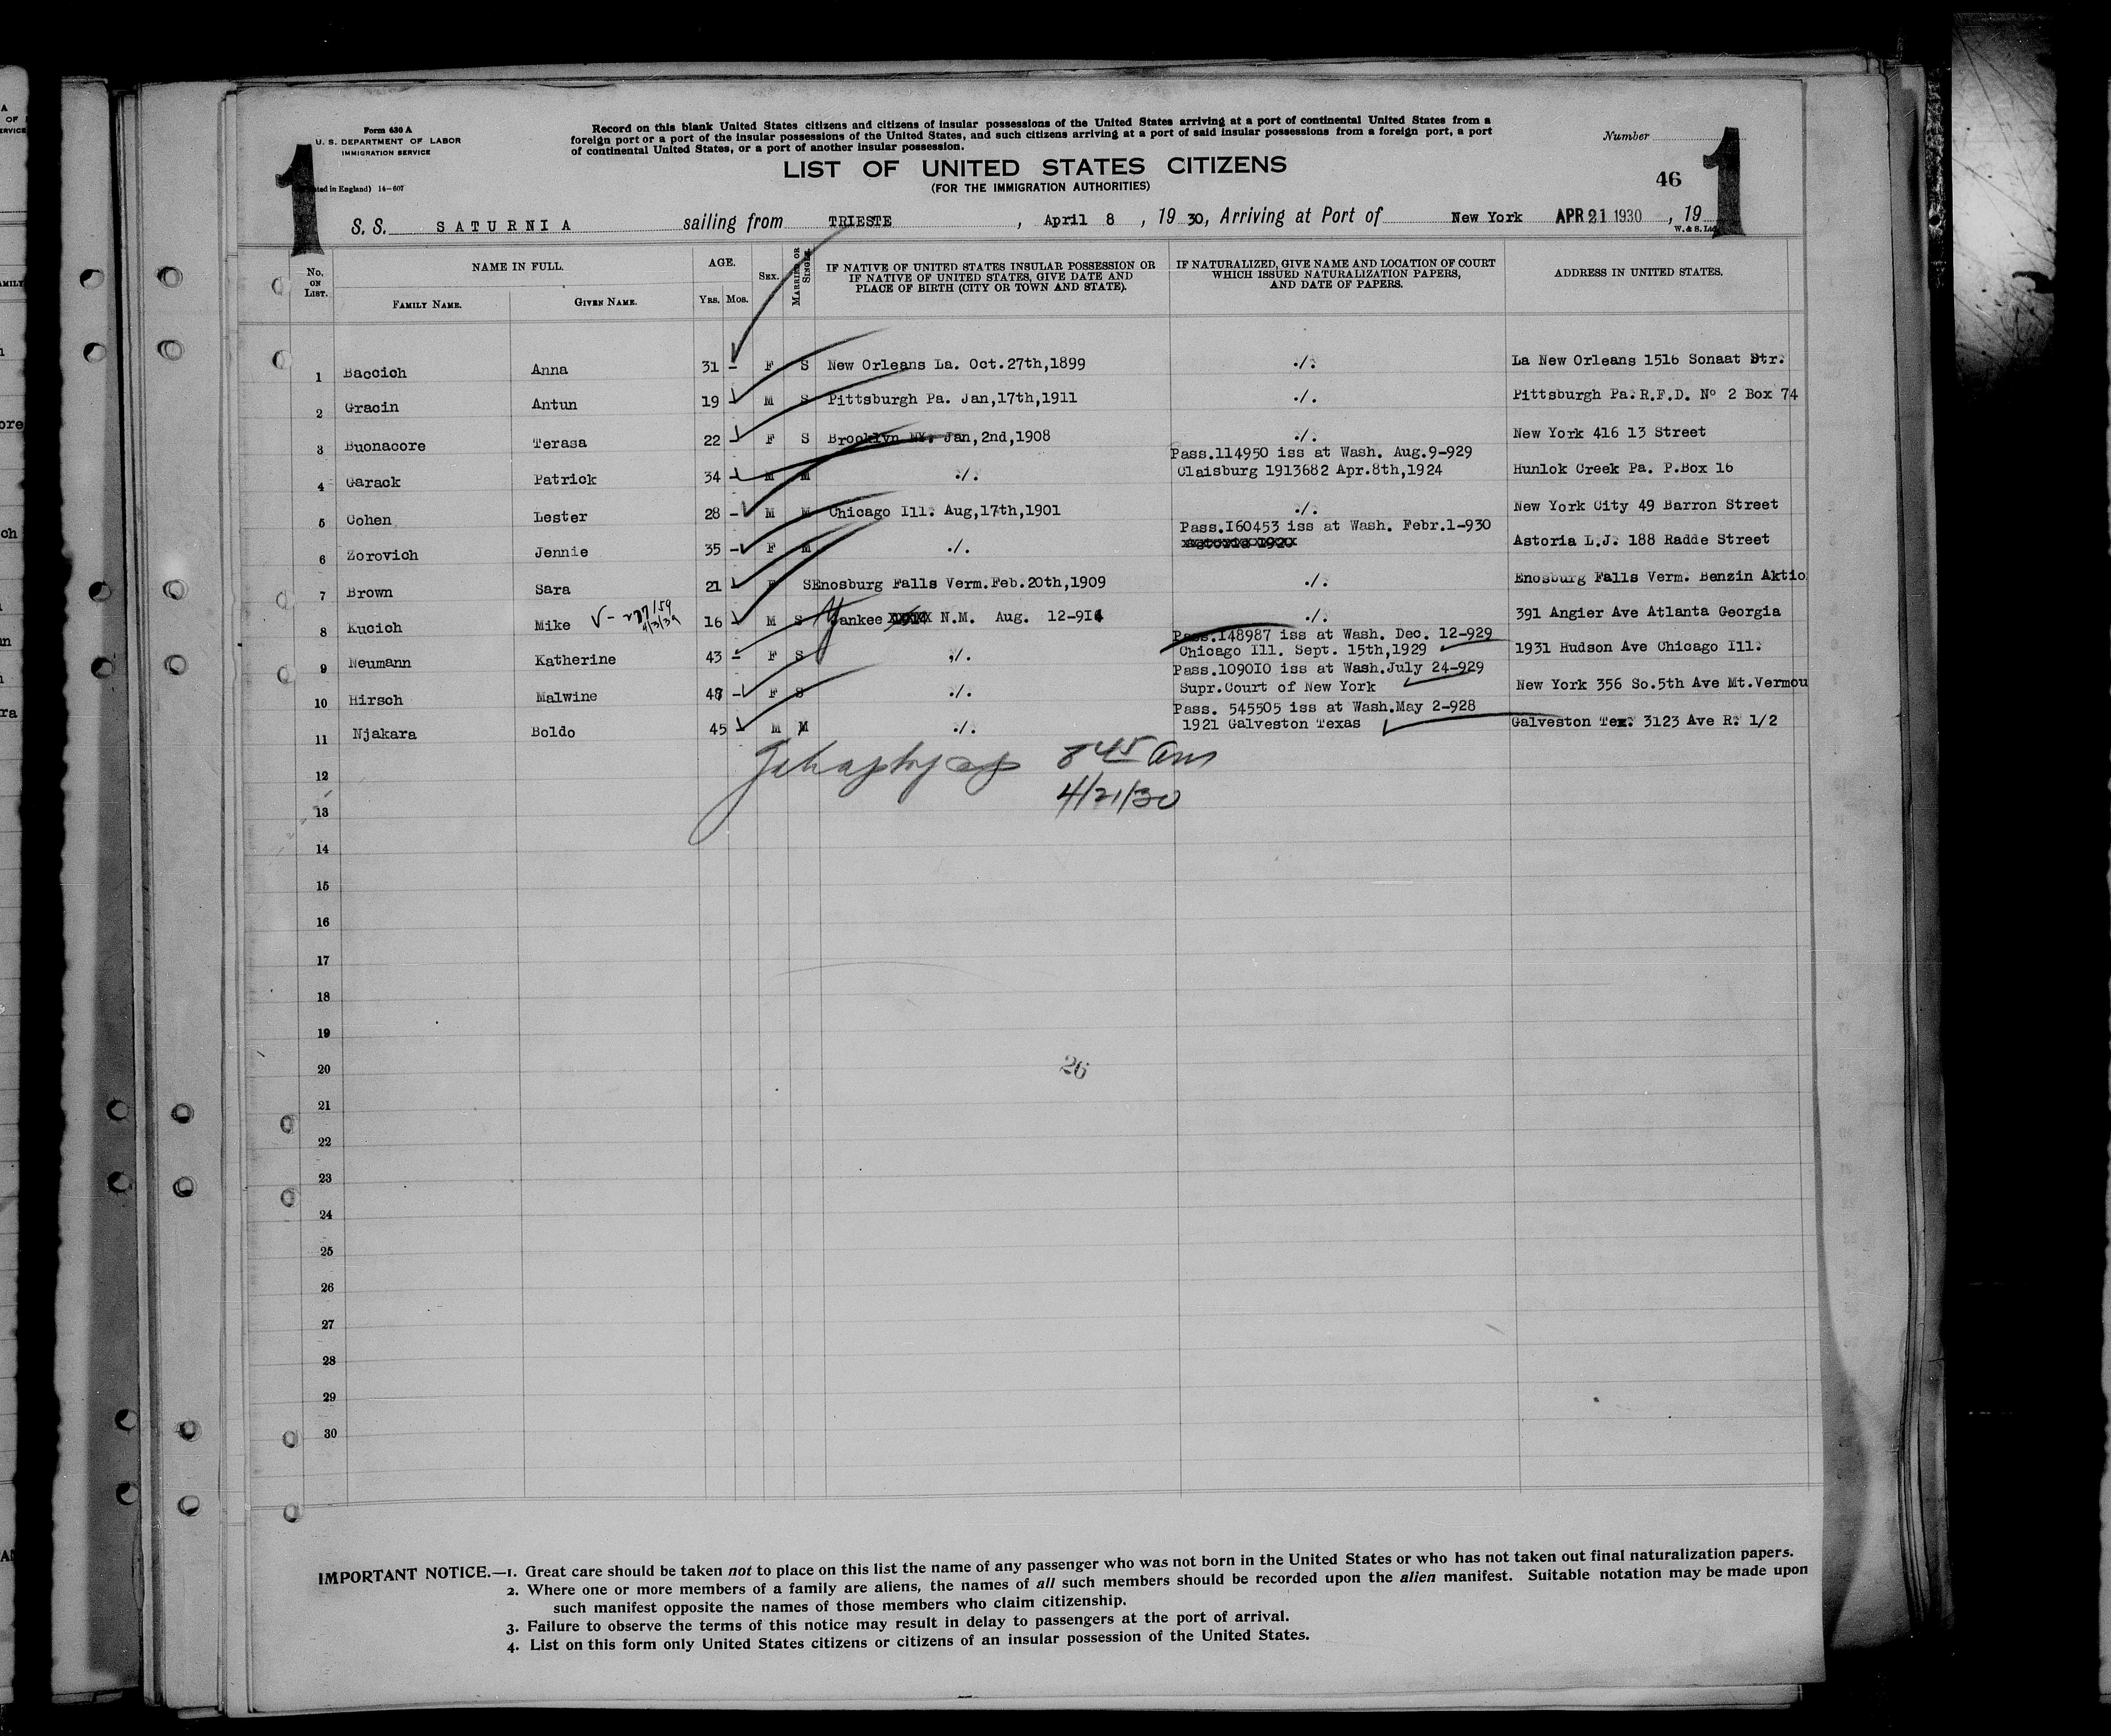 Form 630 A
U. S. DEPARTMENT OF LABOR
IMMIGRATION SERVICE
in England) 14—607
1
1
Record on this blank United States citizens and citizens of insular possessions of the United States arriving at a port of continental United States from a
foreign port or a port of the insular possessions of the United States, and such citizens arriving at a port of said insular possessions from a foreign port, a port
of continental United States, or a port of another insular possession.
Number
LIST OF UNITED STATES CITIZENS
(FOR THE IMMIGRATION AUTHORITIES)
46
S. S. SATURNIA sailing from TRIESTE, April 8, 1930, Arriving at Port of New York APR 21 1930, 19
W. & S. Ltd
No. ON LIST. NAME IN FULL. AGE. SEX. MARRIED OR SINGLE. IF NATIVE OF UNITED STATES INSULAR POSSESSION OR IF NATIVE OF UNITED STATES, GIVE DATE AND PLACE OF BIRTH (CITY OR TOWN AND STATE). IF NATURALIZED, GIVE NAME AND LOCATION OF COURT WHICH ISSUED NATURALIZATION PAPERS, AND DATE OF PAPERS. ADDRESS IN UNITED STATES.
FAMILY NAME. GIVEN NAME. YRS. MOS.
1 Baccich Anna 31 - F S New Orleans La. Oct.27th,1899 ./. La New Orleans 1516 Sonaat Str.
2 Gracin Antun 19 - M S Pittsburgh Pa. Jan,17th,1911 ./. Pittsburgh Pa.R.F.D. Nº 2 Box 74
3 Buonacore Terasa 22 - F S Brooklyn NY. Jan,2nd,1908 ./. New York 416 13 Street
Pass.114950 iss at Wash. Aug.9-929
4 Garack Patrick 34 - M M ./. Claisburg 1913682 Apr.8th,1924 Hunlok Creek Pa. P.Box 16
5 Cohen Lester 28 - M M Chicago Ill. Aug,17th,1901 ./. New York City 49 Barron Street
Pass.I60453 iss at Wash. Febr.1-930
6 Zorovich Jennie 35 - F M ./. Astoria 1920 Astoria L.J. 188 Radde Street
7 Brown Sara 21 - F S Enosburg Falls Verm.Feb.20th,1909 ./. Enosburg Falls Verm. Benzin Aktio
8 Kucich Mike 16 - M S Yankee N.M. Aug. 12-914 ./. 391 Angier Ave Atlanta Georgia
Pass.I48987 iss at Wash. Dec. 12-929
9 Neumann Katherine 43 - F S ./. Chicago Ill. Sept. 15th,1929 1931 Hudson Ave Chicago Ill.
Pass.1090I0 iss at Wash.July 24-929
10 Hirsch Malwine 48 - F S ./. Supr.Court of New York New York 356 So.5th Ave Mt.Vermou
Pass. 545505 iss at Wash.May 2-928
11 Njakara Boldo 45 M M ./. 1921 Galveston Texas Galveston Tex. 3123 Ave R. 1/2
12
8 45 am
4/21/30
13
14
15
16
17
18
19
20
26
21
22
23
24
25
26
27
28
29
30
IMPORTANT NOTICE.—1. Great care should be taken not to place on this list the name of any passenger who was not born in the United States or who has not taken out final naturalization papers.
2. Where one or more members of a family are aliens, the names of all such members should be recorded upon the alien manifest. Suitable notation may be made upon
such manifest opposite the names of those members who claim citizenship.
3. Failure to observe the terms of this notice may result in delay to passengers at the port of arrival.
4. List on this form only United States citizens or citizens of an insular possession of the United States.